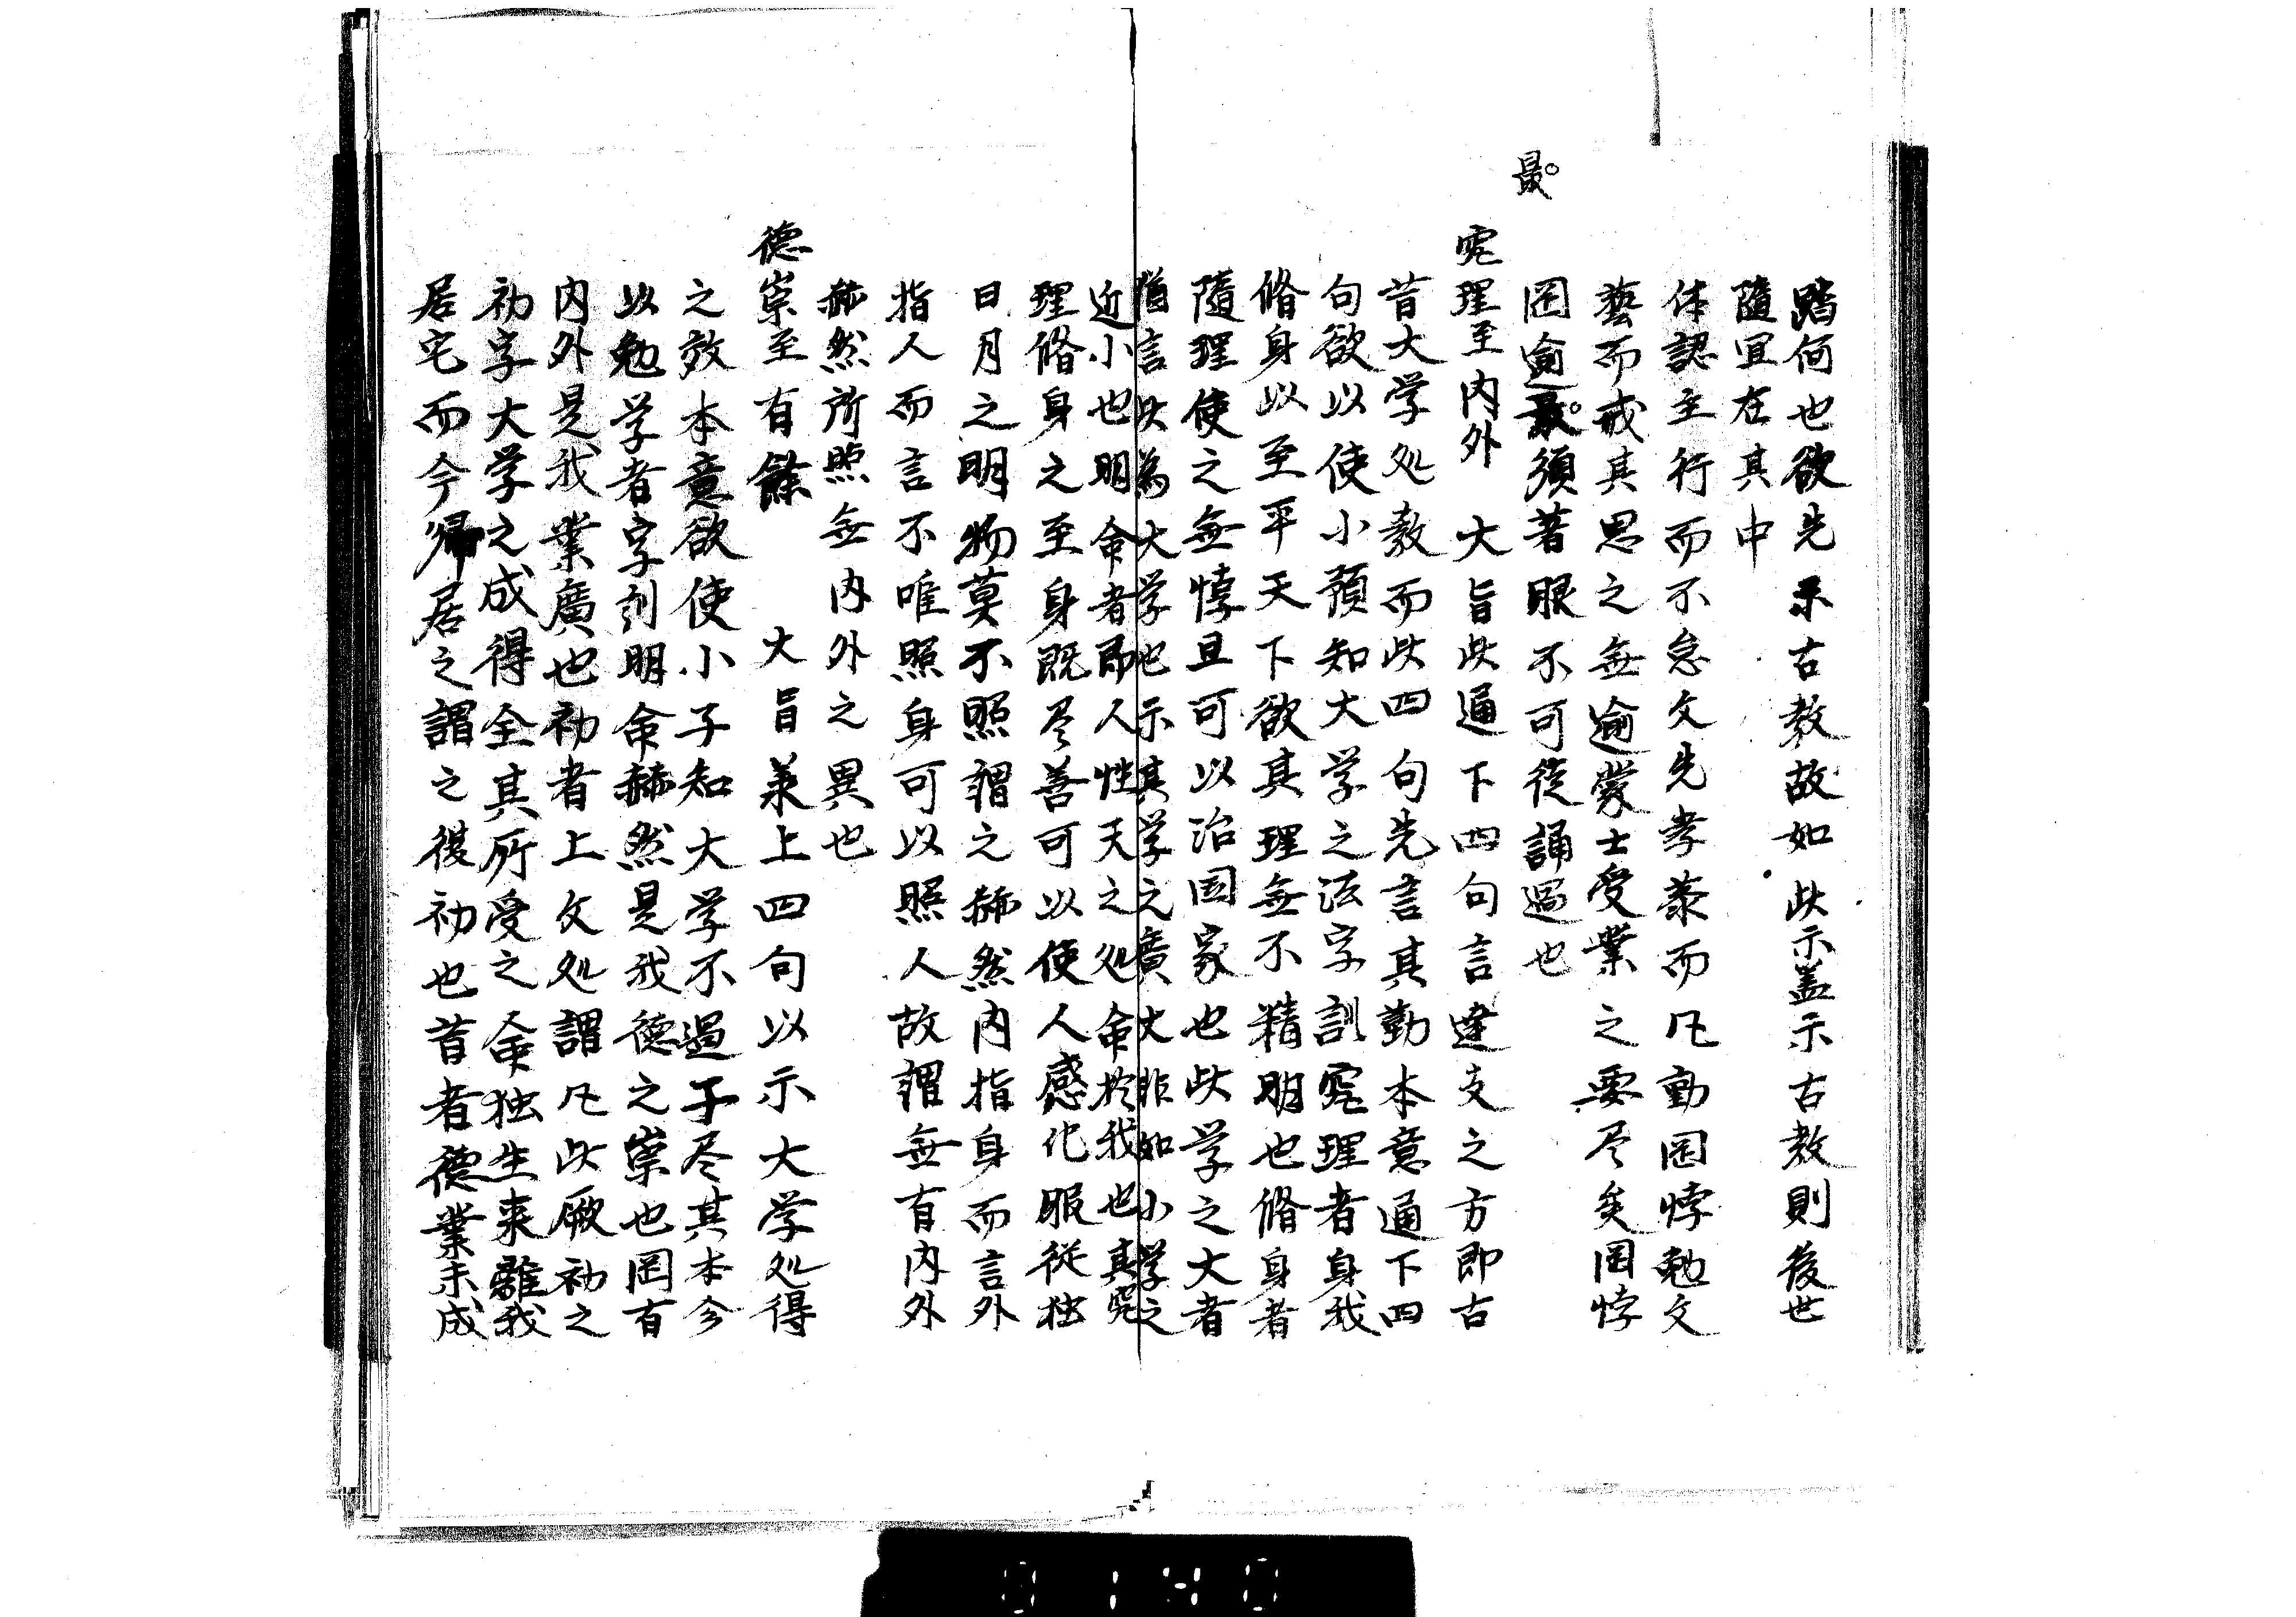 踏何也欲先示古教故如此示盖示古教則後世
隨宜在其中
体認主行而不怠文先孝恭而凡動罔悖勉文
藝而戒其思之無逾蒙士受業之要尽矣罔悖
罔逾最須著眼不可徒誦過也
最
窮理至内外　大旨此通下四句言達支之方即古
昔大学処教而此四句先言其勤本意通下四
句欲以使小預知大学之法字訓窮理者身我
脩身以至平天下欲其理無不精明也脩身者
隨理使之無悖且可以治国家也此学之大者
猶言此為大学也示其学之廣大非如小学之
近小也明命者即人性天之処命於我也其窮
理脩身之至身既尽善可以使人感化服従独
日月之明物莫不照謂之赫然内指身而言外
指人而言不唯照身可以照人故謂無有内外
赫然所照無内外之異也
德崇至有餘　大旨兼上四句以示大学処得
之效本意欲使小子知大学不過子尽其本今
以勉学者字別明命赫然是我德之崇也罔有
内外是我業廣也初者上文処謂凡此厥初之
初字大学之成得全其所受之命独生来離我
居宅而今帰居之謂之復初也首者德業未成